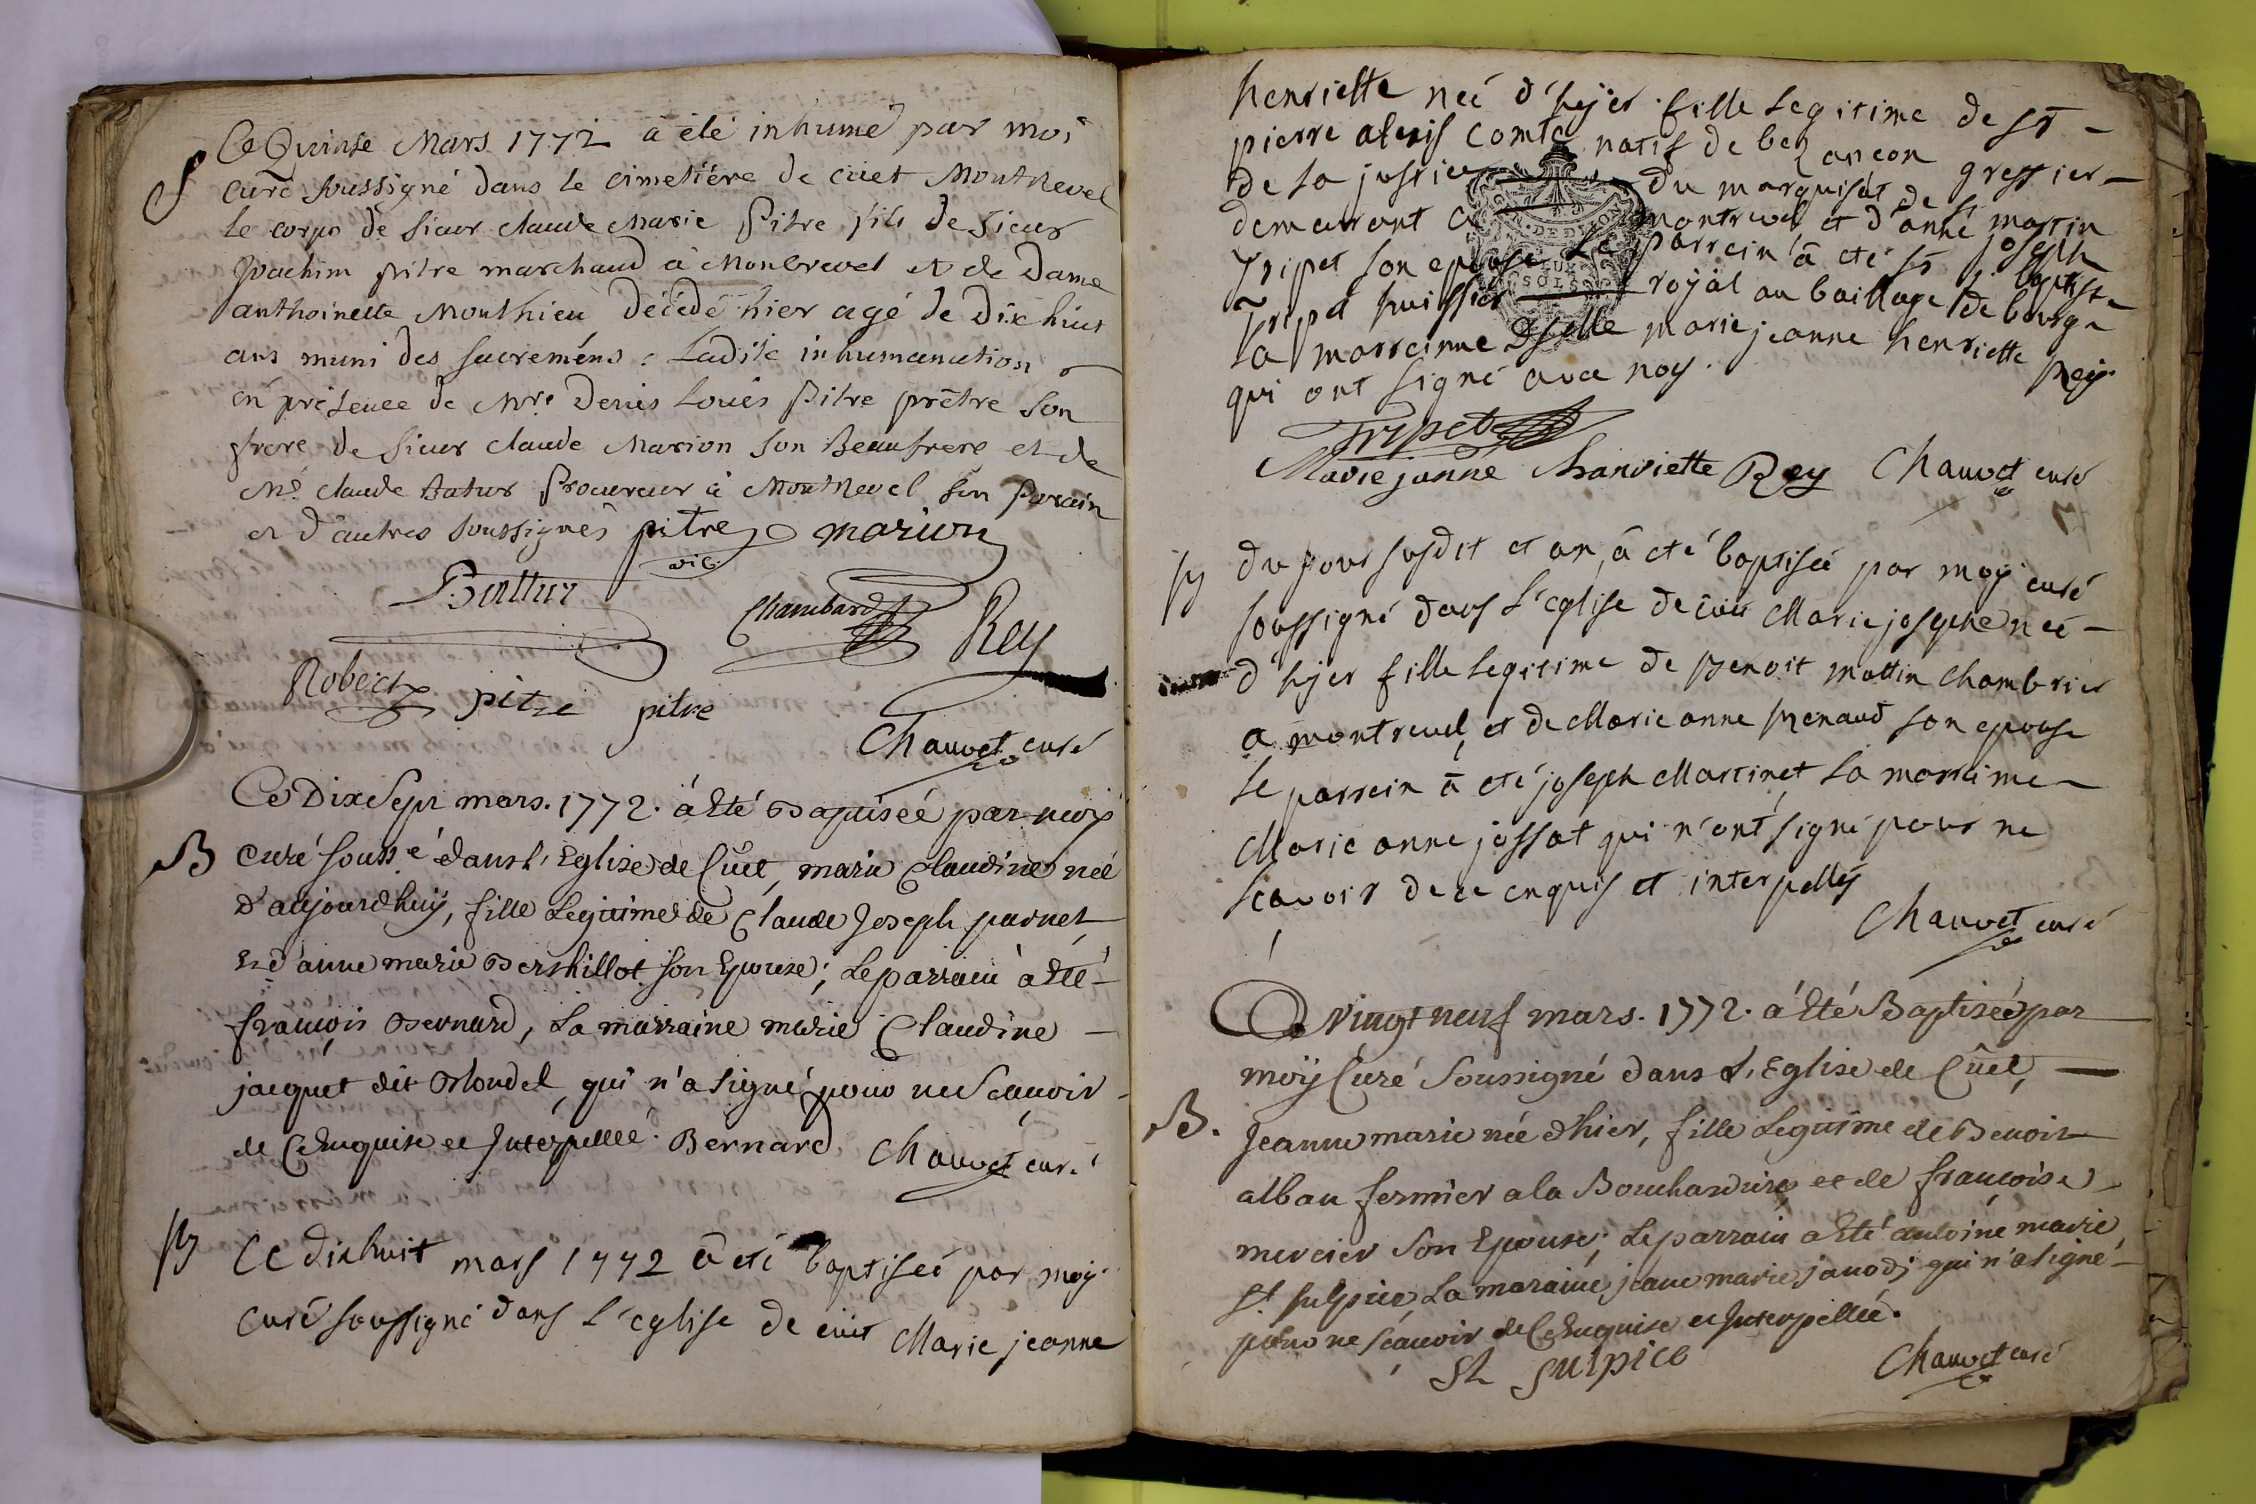 Ce Quinse Mars 1772 a été inhumé par moi
S curé soussigné dans le cimetiére de cuet Montrevel
le corps de sieur claude Marie Pitre fils de sieur
joachim pitre marchand à Monbrevel et de Dame
anthoinette Monthieu décédé hier agé de Dix huit
ans muni des sacremens : Ladite inhumanation
en présence de Mre Denis Louis Pitre prêtre son
frere de sieur claude Marion son Beaufrere et de
Me claude Batur Procureur à Montrevel son parain
et d'autres soussignés pitre marion
vic.
Battur Chambard Rey
Robert pitre pitre
Chauvet curé
Ce Dix Sept mars. 1772. á Eté Baptiséé par moy
B curé souss.é dans L'Eglise de Cuet, marie Claudine née
D'aujourdhuy, fille Legitime de Claude Joseph parnet
Et d'anne marie Bershillot son Epouse; Le parrain à Eté
françois Bernard, La marraine marie Claudine
jacquet dit Blondel, qui n'a signé pour ne Scauoir
de Ce Enquise et Interpellée. Bernard Chauvet curé
B Ce dixhuit mars 1772 a eté baptiseé par moy
curé soussigné dans l'église de cuet Marie jeanne
henriette neé d'hyer fille legitime de sr
pierre alexis comte natif de bezancon greffier
de la justice du marquisat de st
demeurant a montrevel, et d'anne martin
Tripet son epouse Le parrein a eté sr joseph baptiste
Tripet huissier royal au bailliage de bourg
la marreinne Dselle marie jeanne henriette Rey
qui ont signé avec noy.
Tripet
Marie janne hanriette Rey Chauvet curé
B du jour susdit et an, a eté baptiseé par moy curé
soussigné dans l'église de cuet Marie josephe neé
d'hyer fille legitime de Benoit mattin chambrier
a montrevel, et de Marie anne Renaud son epouse
le parrein a eté joseph Martinet la marreine
Marie anne jossat qui n'ont signé pour ne
scavoir de ce enquis et interpellés
Chauvet curé
Ce vingt neuf mars. 1772. á Eté Baptiséé par
moÿ Curé Soussigné dans L'Eglise de Cuet,
B. Jeanne marie née d'hier, fille Legitime de Benoit
alban fermier a la Bouchardiere et de françoise
mercier Son Epouse; Le parrain a Eté antoine marie
st sulpice, La maraine jeane marie janody qui n'a signé
pour ne Scauoir de Ce Enquise et Interpellée.
St sulpice Chauvet curé